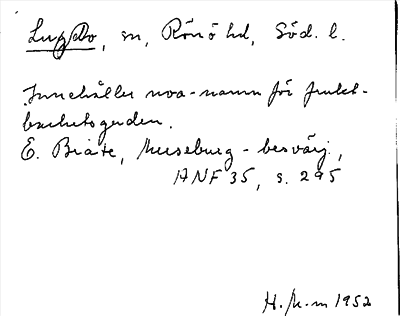 Lugbo, sn, Rönö hd, Söd. l.
Innehåller noa-namn för frukt-
barhetsguden.
E. Brate, Merseburg-besvärj.,
ANF 35, s. 295
H. M-m 1952